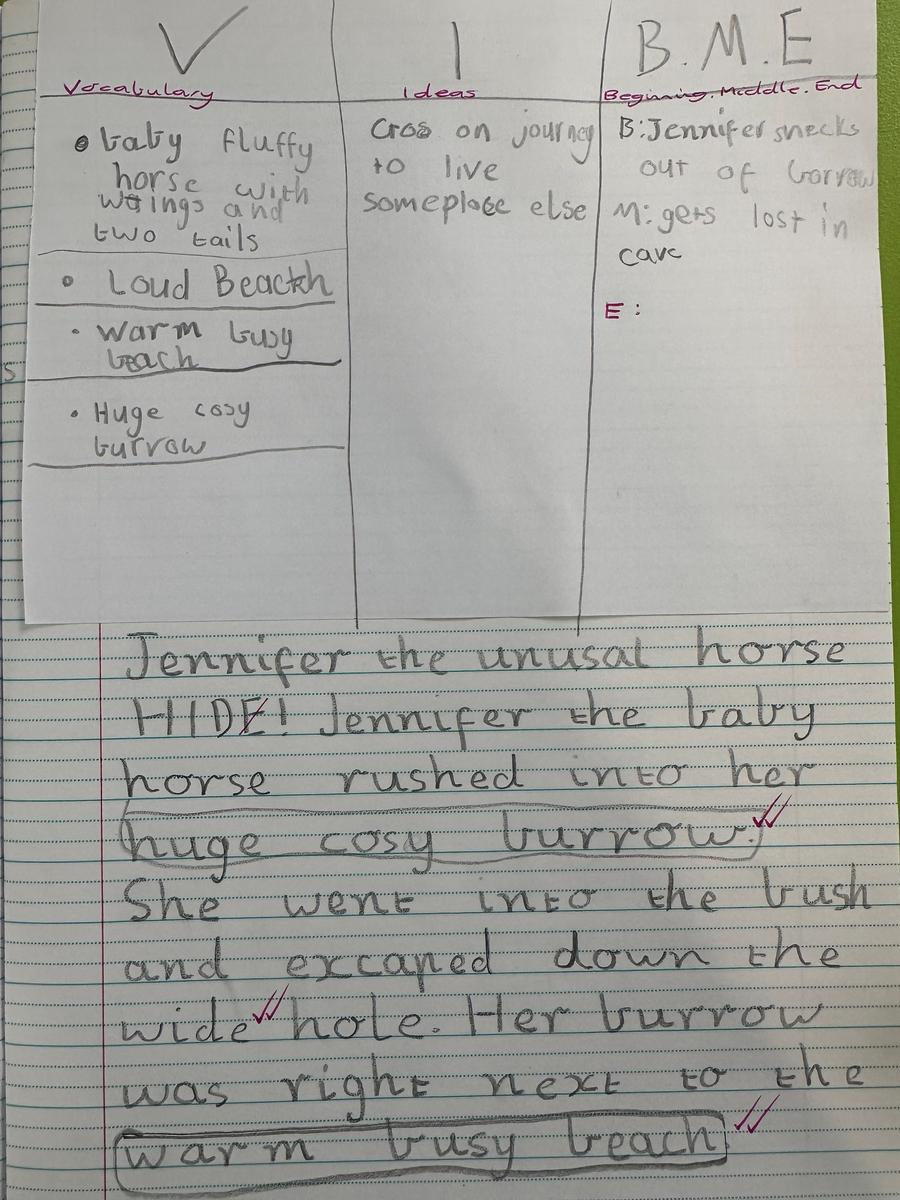 V
Vocabulary
• baby fluffy
horse with
wings and
two tails
• Loud Beach
• warm busy
beach
• Huge cosy
burrow
I
Ideas
Cros on journey
to live
someplace else
B.M.E
Beginning. Middle. End
B: Jennifer snecks
out of borrow
M: gets lost in
cave
E :
s
Jennifer the unusal horse
HIDE! Jennifer the baby
horse rushed into her
huge cosy burrow.
She went into the bush
and excaped down the
wide hole. Her burrow
was right next to the
warm busy beach